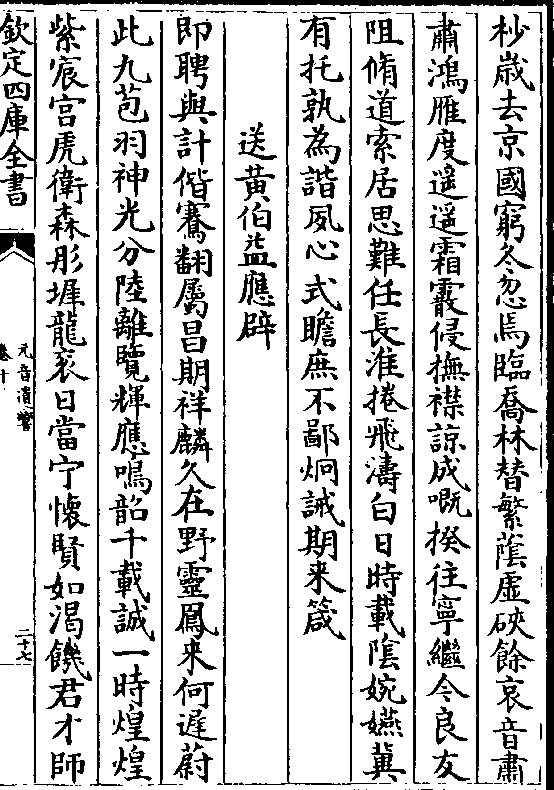 杪嵗去京國窮冬忽焉臨喬林替繁蔭虚硤餘哀音肅
肅鴻雁度遥遥霜霰侵撫襟諒成嘅揆往寧繼今良友
阻脩道索居思難任長淮捲飛濤白日時載陰婉嬿冀
有托孰為諧夙心式瞻庶不鄙炯誡期来箴
送黄伯益應辟
即聘與計偕騫翻屬昌期祥麟久在野靈鳳来何遲蔚
此九苞羽神光分陸離覽輝應鳴韶千載誠一時煌煌
紫宸宫虎衛森彤墀龍衮日當宁懷賢如渴饑君才師
欽定四庫全書
元音遺響
卷十
二十七